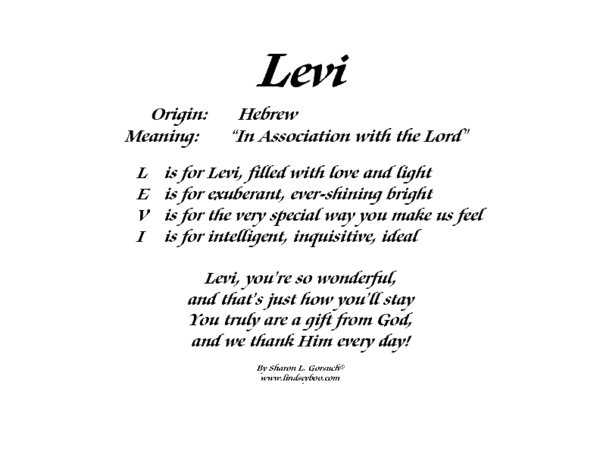 Levi
Origin: Hebrew
Meaning: "In Association with the Lord"
L is for Levi, filled with love and light
E is for exuberant, ever-shining bright
V is for the very special way you make us feel
I is for intelligent, inquisitive, ideal
Levi, you're so wonderful,
and that's just how you'll stay
You truly are a gift from God,
and we thank Him every day!
By Sharon L. Gorsuch©
www.lindseyboo.com